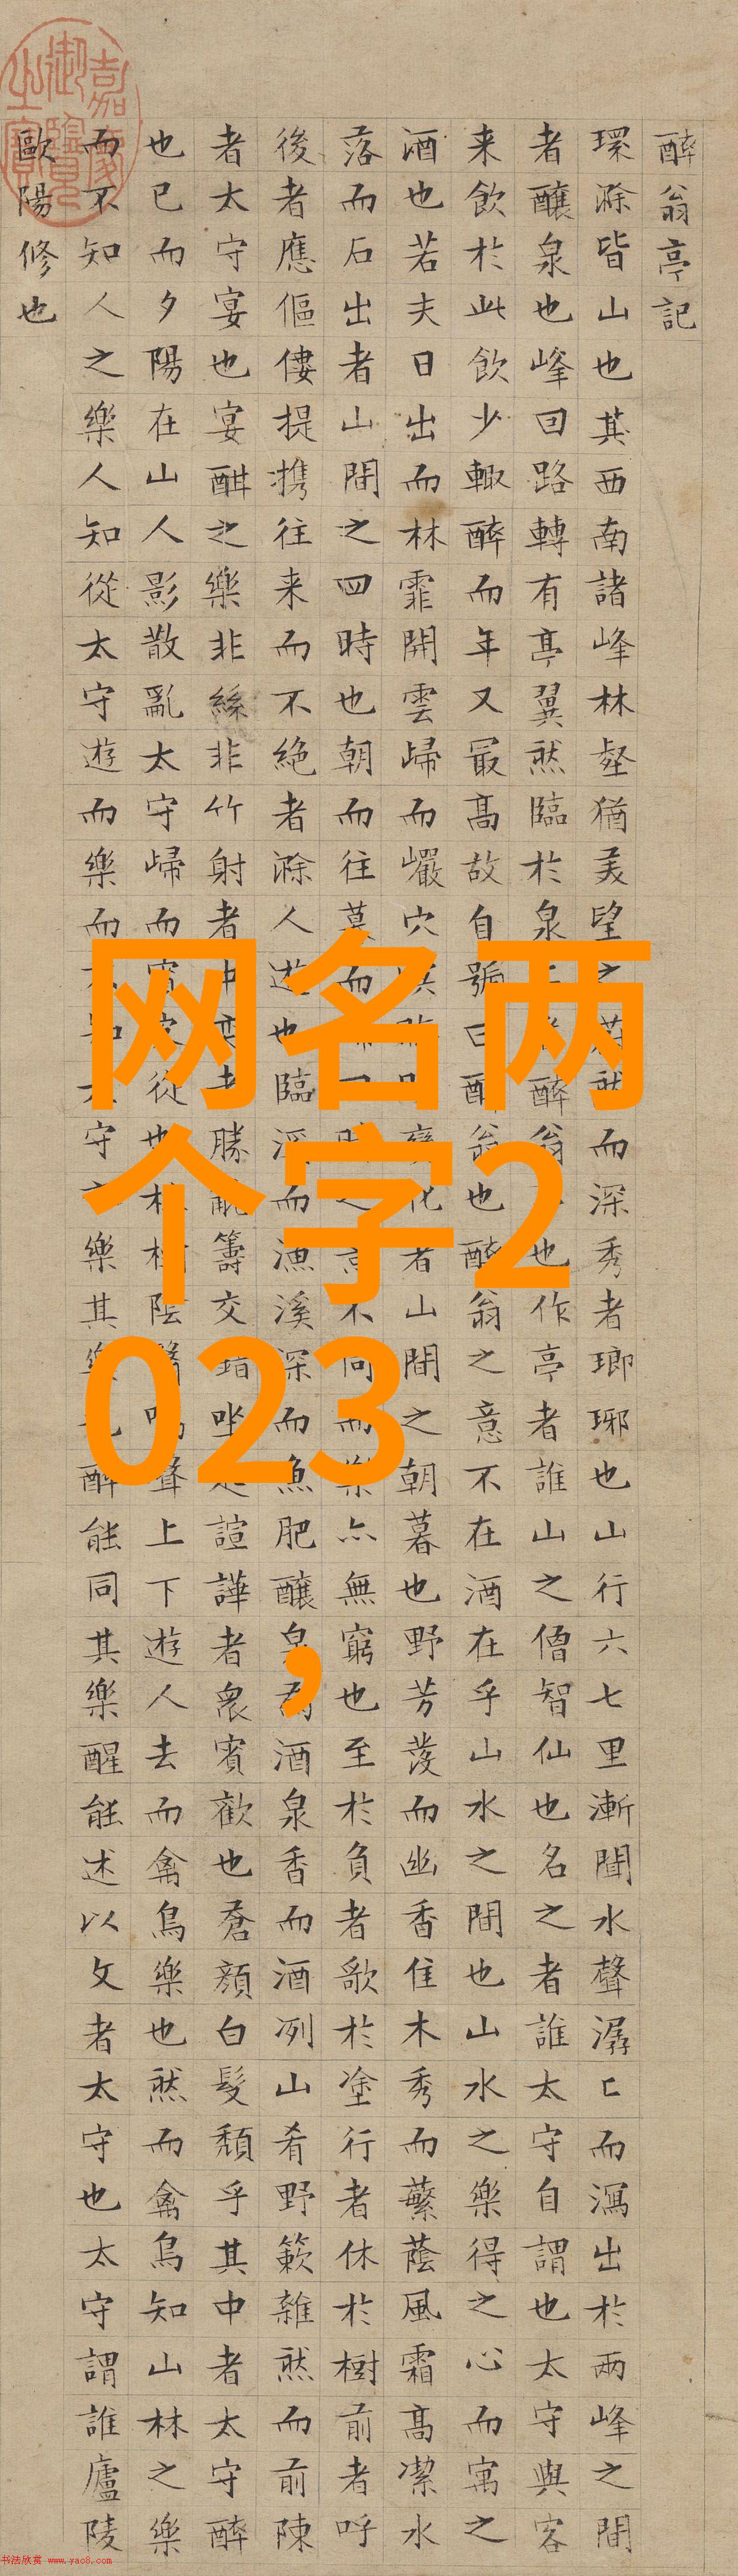 醉翁亭記
環滁皆山也其西南諸峰林壑猶美望之蔚然而深秀者瑯琊也山行六七里漸聞水聲潺〻而瀉出於兩峰之間
者釀泉也峰回路轉有亭翼然臨於泉上者醉翁亭也作亭者誰山之僧智仙也名之者誰太守自謂也太守與客
来飲於此飲少輒醉而年又最高故自號曰醉翁也醉翁之意不在酒在乎山水之間也山水之樂得之心而寓之
酒也若夫日出而林霏開雲歸而巖穴暝晦明變化者山間之朝暮也野芳發而幽香佳木秀而蘩蔭風霜高潔水
落而石出者山間之四時也朝而往莫而歸四時之景不同而樂亦無窮也至於負者歌於塗行者休於樹前者呼
後者應傴僂提攜往来而不絕者滁人遊也臨溪而漁溪深而魚肥釀泉為酒泉香而酒冽山肴野簌雜然而前陳
者太守宴也宴酣之樂非絲非竹射者中奕者勝觥籌交錯坐起諠譁者衆賓歡也蒼顏白髮頹乎其中者太守醉
也已而夕陽在山人影散亂太守歸而賓客從也林樹陰翳鳴聲上下遊人去而禽鳥樂也然而禽鳥知山林之樂
而不知人之樂人知從太守遊而樂而不知太守之樂其樂也醉能同其樂醒能述以文者太守也太守謂誰廬陵
歐陽修也
嘉慶御覽之寶
网名两
个字2
023
,
书法欣赏 www.yac8.com